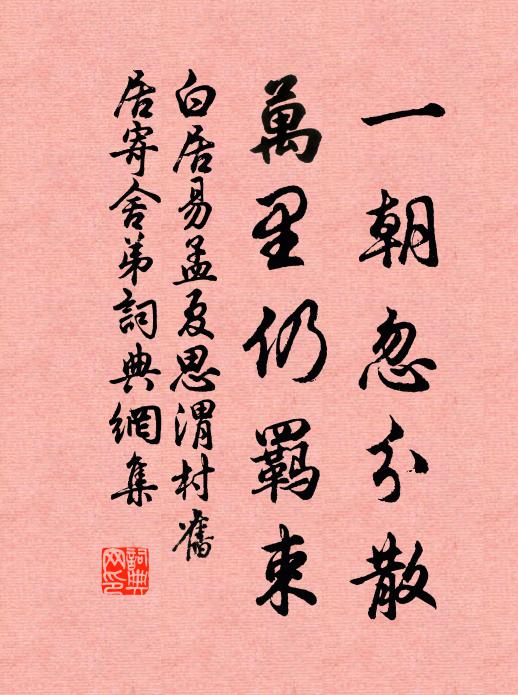 一朝忽分散
萬里仍羈束
白居易孟夏思渭村舊
居寄舍弟詞典網集
詞典
网印